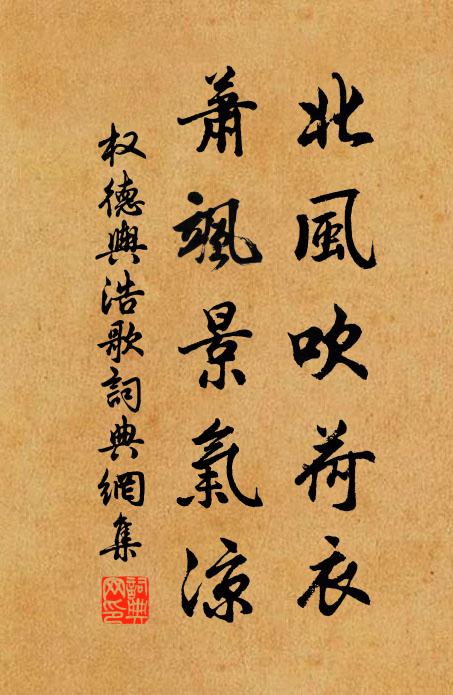 北風吹荷衣
蕭颯景氣涼
权德輿浩歌詞典網集
詞典網印